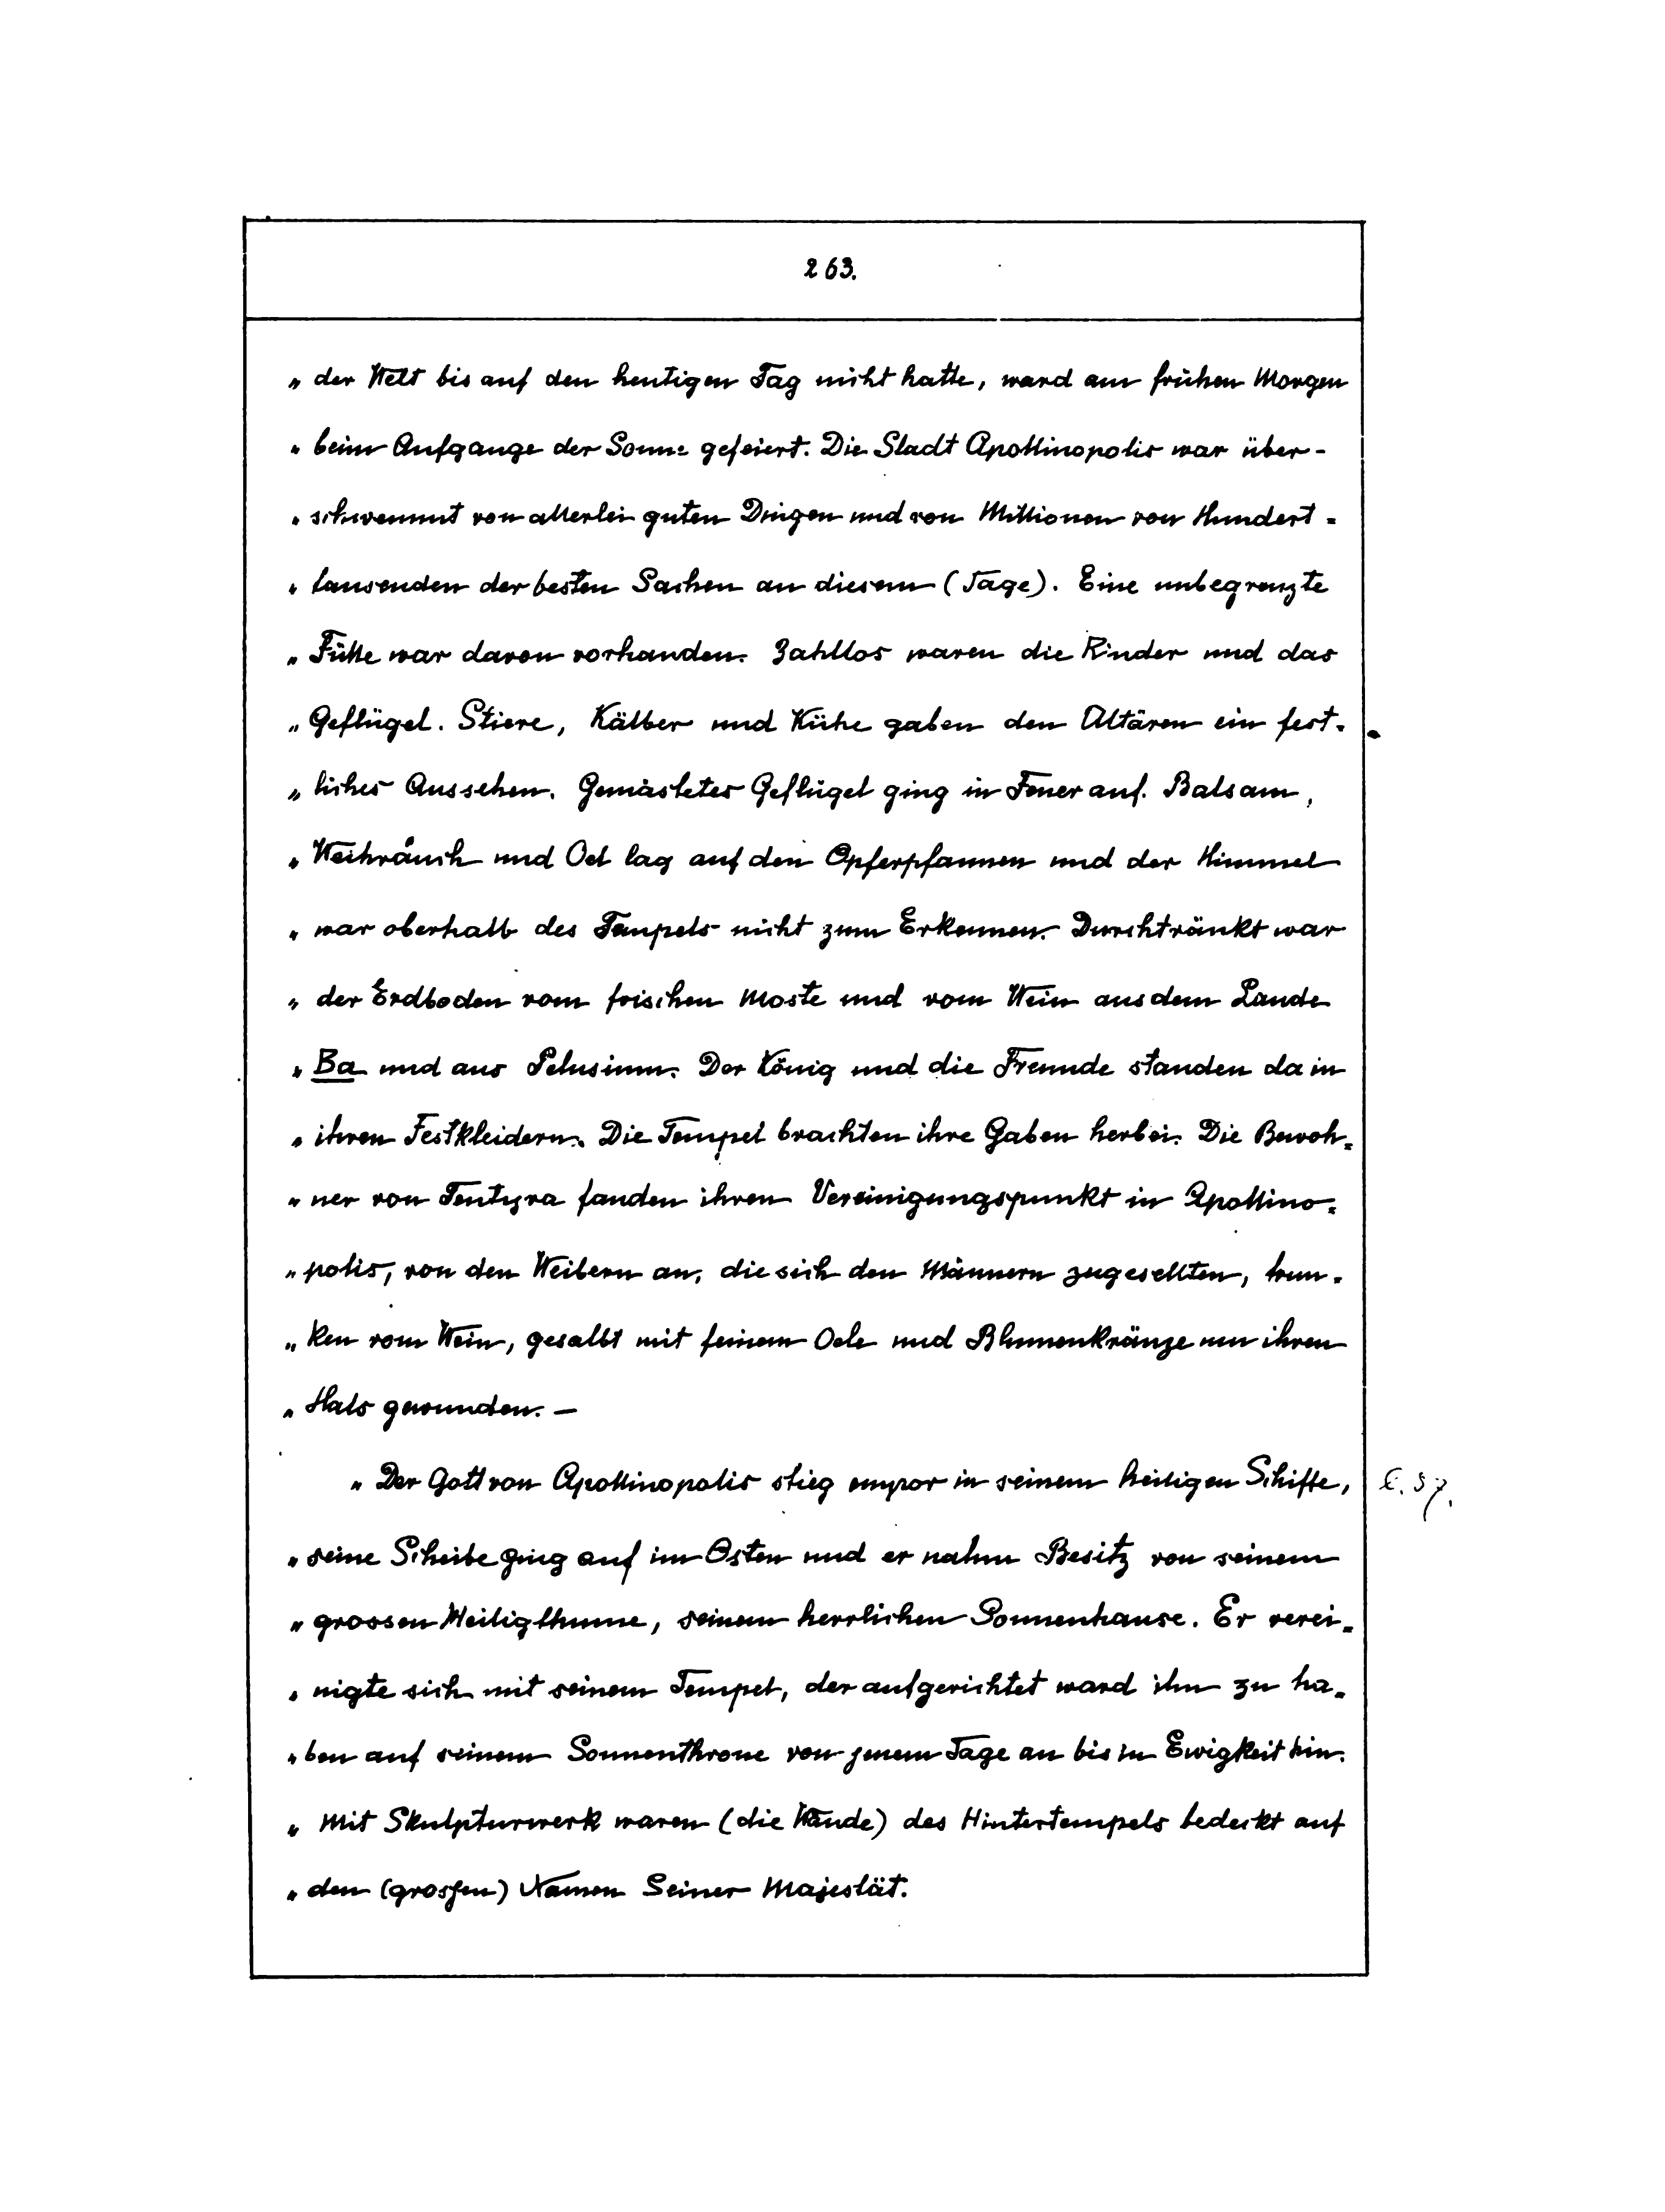 263.
„ der Welt bis auf den heutigen Tag nicht hatte, ward am frühen Morgen
„ beim Aufgange der Sonne gefeiert. Die Stadt Apollinopolis war über-
„ schwemmt von allerlei guten Dingen und von Millionen von Hundert-
„ tausenden der besten Sachen an diesem (Tage). Eine unbegrenzte
„ Fülle war davon vorhanden. Zahllos waren die Rinder und das
„ Geflügel. Stiere, Kälber und Kühe gaben den Altären ein fest-
„ liches Aussehen. Gemästetes Geflügel ging in Feuer auf. Balsam,
„ Weihrauch und Oel lag auf den Opferpfannen und der Himmel
„ war oberhalb des Tempels nicht zum Erkennen. Durchtränkt war
„ der Erdboden vom frischen Moste und vom Wein aus dem Lande
„ Ba und aus Pelusium. Der König und die Freunde standen da in
„ ihren Festkleidern. Die Tempel brachten ihre Gaben herbei. Die Bewoh-
„ ner von Tentyra fanden ihren Vereinigungspunkt in Apollino-
„ polis, von den Weibern an, die sich den Männern zugesellten, trun-
„ ken vom Wein, gesalbt mit feinem Oele und Blumenkränze um ihren
„ Hals gewunden. –
„ Der Gott von Apollinopolis stieg empor in seinem heiligen Schiffe,
„ seine Scheibe ging auf im Osten und er nahm Besitz von seinem
„ grossen Heiligthume, seinem herrlichen Sonnenhause. Er verei-
„ nigte sich mit seinem Tempel, der aufgerichtet ward ihn zu ha-
„ ben auf seinem Sonnenthrone von jenem Tage an bis in Ewigkeit hin.
„ Mit Skulpturwerk waren (die Wände) des Hintertempels bedeckt auf
„ den (grossen) Namen Seiner Majestät.